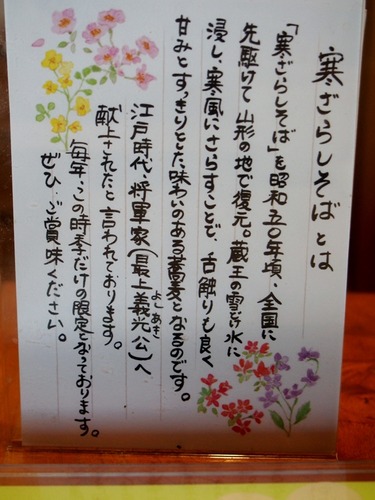 寒ざらしそばとは
「寒ざらしそば」を昭和五〇年頃、全国に
先駆けて山形の地で復元。蔵王の雪どけ水に
浸し、寒風にさらすことで、舌触りも良く
甘みとすっきりとした味わいのある蕎麦となるのです。
江戸時代、将軍家(最上義光公)へ
よしあき
献上されたと言われております。
毎年、この時季だけの限定となっております。
ぜひ、ご賞味ください。